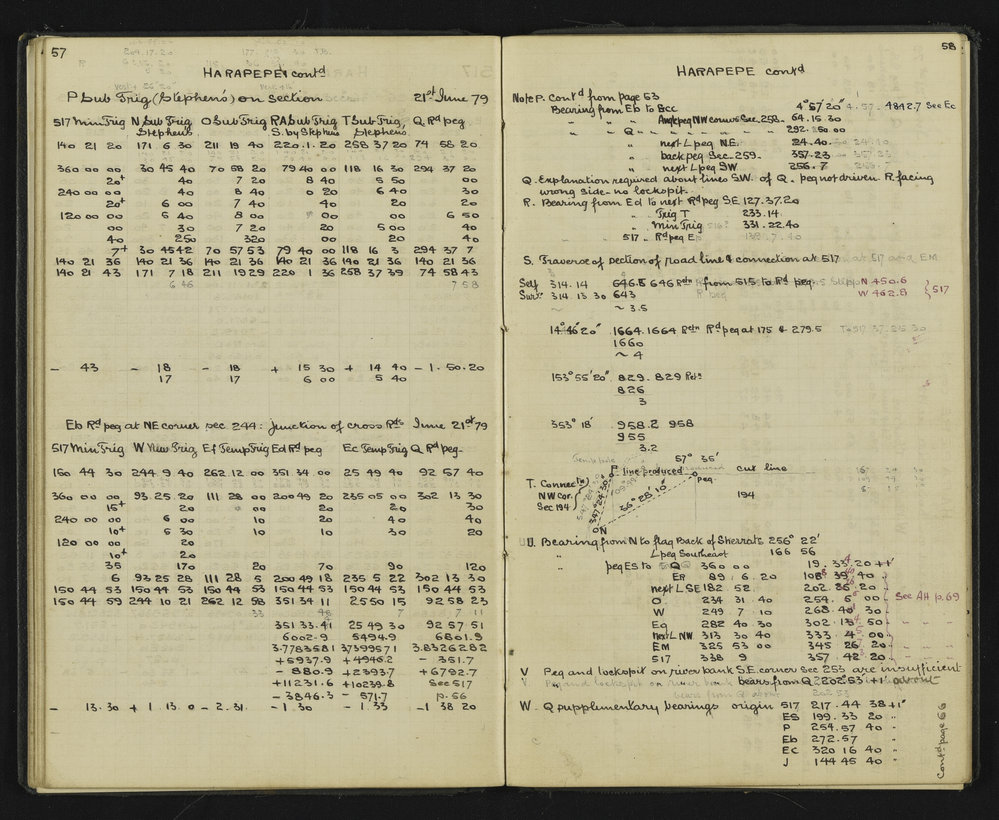 57
HARAPEPE contd
P Sub Trig (Stephen's) on section 21st June 79
517 Min Trig N Sub Trig O Sub Trig RA Sub Trig T Sub Trig, Q. Rd peg
Stephen's S. by Stephens Stephens.
140 21 20 171 6 30 211 19 40 220.1.20 258 37 20 74 58 20
360 00 00 30 45 40 70 58 20 79 40 00 118 16 30 294 37 20
20+ 40 7 20 8 40 5 50 00
240 00 00 40 8 40 0 20 6 40 30
20+ 6 00 7 40 40 20 20
120 00 00 5 40 8 00 00 00 6 50
00 30 7 20 20 5 00 40
40 250 320 00 20 40
7+ 30 45 42 70 57 53 79 40 00 118 16 3 294 37 7
140 21 36 140 21 36 140 21 36 140 21 36 140 21 36 140 21 36
140 21 43 171 7 18 211 19 29 220 1 36 258 37 39 74 58 43
6 46 7 58
- 43 - 18 - 18 + 15 30 + 14 40 - 1.50.20
17 17 6 00 5 40
Eb Rd peg at NE corner sec 244: junction of cross Rds June 21st 79
517 Min Trig W New Trig Ef Temp Trig Ed Rd peg Ec Temp Trig Q Rd peg
150 44 30 244 9 40 262 12 00 351 34 00 25 49 40 92 57 40
360 00 00 93 25 20 111 28 00 200 49 20 235 05 00 302 13 30
15+ 20 00 20 20 30
240 00 00 6 00 10 20 40 40
10+ 5 30 10 10 30 20
120 00 00 20
10+ 20
35 170 20 70 90 120
6 93 25 28 111 28 5 200 49 18 235 5 22 302 13 30
150 44 53 150 44 53 150 44 53 150 44 53 150 44 53 150 44 53
150 44 59 244 10 21 262 12 58 351 34 11 25 50 15 92 58 23
33 7 7 11
351 33.41 25 49 30 92 57 51
6002.9 5494.9 6801.9
3.7783581 3.7399571 3.8326282
+5937.9 +4946.2 - 351.7
- 880.9 +2393.7 +6792.7
+11231.6 +10239.8 See 517
- 3846.3 - 571.7 p. 56
- 13.30 + 1.13.0 - 2.31 - 1.30 - 1.33 - 1 38 20
58
HARAPEPE contd
Note P. Contd from page 53
Bearing from Eb to Ecc 4° 57' 20" 4842.7 See Ec
" " Angle peg NW corner Sec. 258- 64.15.30
" " Q " " " " " " 292.50.00
" next L peg N.E. 24.40
" back peg Sec. 259- 357.23
" next L peg SW 256.7
Q. Explanation required about lines S.W. of Q. peg not driven R. facing
wrong side - no lockspit.
R. Bearing from Ed to next Rd peg SE 127.37.20
" Trig T 233.14
" Min Trig 331.22.40
517 " Rd peg E
S. Traverse of section of road line & connection at 517
Self 314.14 646.5 646 Rdn from 515 to Rd peg N 450.6
Surr 314.13 30 643 W 462.8 } 517
~ 3.5
14° 46' 20" 1664. 1664 Rdn Rd peg at 175 & 279.5
1660
~ 4
153° 55' 20" 829. 829 Rdn
826
3
353° 18' 958.2 958
955
3.2
57° 35'
P line produced cut line
T. Connectn peg
NW Cor. 347° 24' 30" 36° 28' 10" 194
Sec 194
N
U. Bearing from N to flag Back of Sherrats 256° 22'
" L peg Southeast 166 56
peg ES to Q 360 00 19.33.20 +1'
ER 89.6.20 108 39 40 "
next L SE 182 52. 202 26 20 "
O. 234 31 40 254. 5 00 " See AH p. 69
W 249 7 10 268 40 30 "
Eq 282 40 30 302.13 50 "
next L NW 313 30 40 333 4 00 "
EM 325 53 00 345 26 20 "
517 338 9 357 42 20 "
V Peg and lockspit on river bank S.E. corner Sec 253 are insufficient
bears from Q 202° 53' +1' about
W - Q supplementary bearings origin 517 217.44 38 +1"
ES 199.33 20 "
P 254.57 40 "
Eb 272.57
EC 320 16 40 "
J 144 45 40 "
Contd page 66